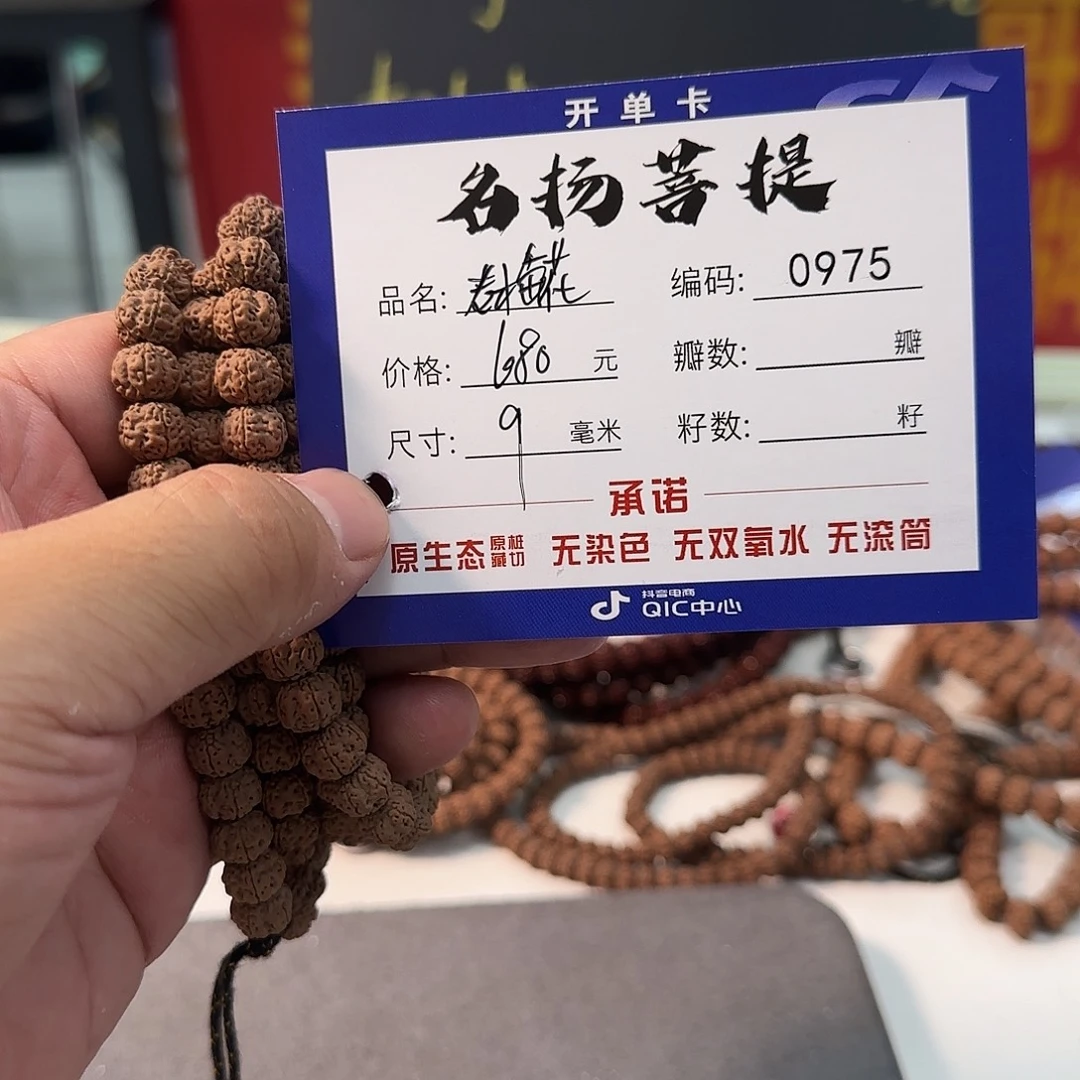 开单卡
名扬菩提
品名: 编码: 0975
价格: 680 元 瓣数: 瓣
尺寸: 9 毫米 籽数: 籽
承诺
原生态 原桩藏切 无染色 无双氧水 无滚筒
抖音电商
QIC中心